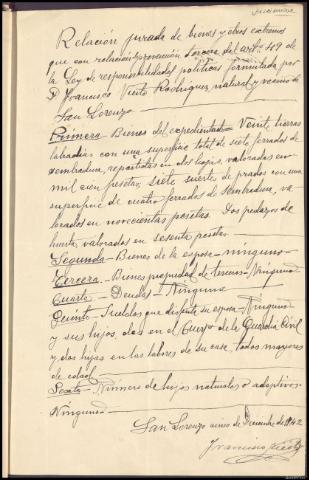 Relación jurada de bienes y otros extremos
que con relación prevención tercera del artº 49 de
la Ley de responsabilidades políticas formulada por
D. Francisco Vieito Rodríguez natural y vecino de
San Lorenzo
Primera Bienes del expedientado Veinte tierras
labradías con una superficie total de siete ferrados de
sembradura, repartidas en dos lugares, valoradas en
mil cien pesetas, siete suertes de prados con una
superficie de cuatro ferrados de sembradura, va-
lorados en novecientas pesetas. Dos pedazos de
huerta, valorados en sesenta pesetas
Segunda - Bienes de la esposa - ninguno
Tercera - Bienes propiedad de terceros - Ninguno
Cuarta - Deudas - Ninguna
Quinta - Sueldos que disfruta su esposa - Ninguno
y sus hijos, dos en el Cuerpo de la Guardia Civil
y dos hijas en las labores de su casa todos mayores
de edad
Sexta - Número de hijos naturales o adoptivos -
Ninguno
San Lorenzo de Diciembre de 1942
Francisco Vieito